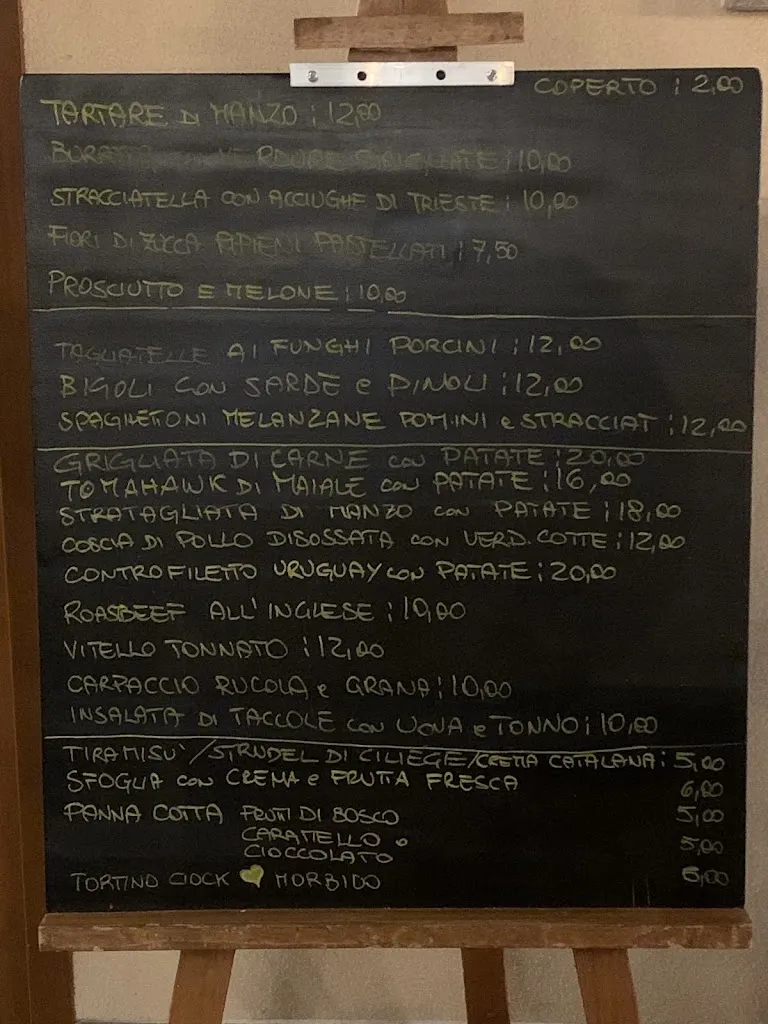 COPERTO : 2,00
TARTARE DI MANZO : 12,00
VERDURE GRIGLIATE : 10,00
STRACCIATELLA CON ACCIUGHE DI TRIESTE : 10,00
FIORI DI ZUCCA RIPIENI PASTELLATI : 7,50
PROSCIUTTO E MELONE : 10,00
TAGLIATELLE AI FUNGHI PORCINI : 12,00
BIGOLI CON SARDE e PINOLI : 12,00
SPAGHETTONI MELANZANE POMINI e STRACCIAT : 12,00
GRIGLIATA DI CARNE con PATATE : 20,00
TOMAHAWK DI MAIALE con PATATE : 16,00
STRATAGLIATA DI MANZO con PATATE : 18,00
COSCIA DI POLLO DISOSSATA con VERD. COTTE : 12,00
CONTROFILETTO URUGUAY con PATATE : 20,00
ROASBEEF ALL'INGLESE : 10,00
VITELLO TONNATO : 12,00
CARPACCIO RUCOLA e GRANA : 10,00
INSALATA DI TACCOLE con UOVA e TONNO : 10,00
TIRAMISU'/STRUDEL DI CILIEGE/CREMA CATALANA : 5,00
SFOGLIA con CREMA e FRUTTA FRESCA 6,00
PANNA COTTA FRUTTI DI BOSCO 5,00
CARAMELLO o
CIOCCOLATO 5,00
TORTINO CIOCK MORBIDO 6,00